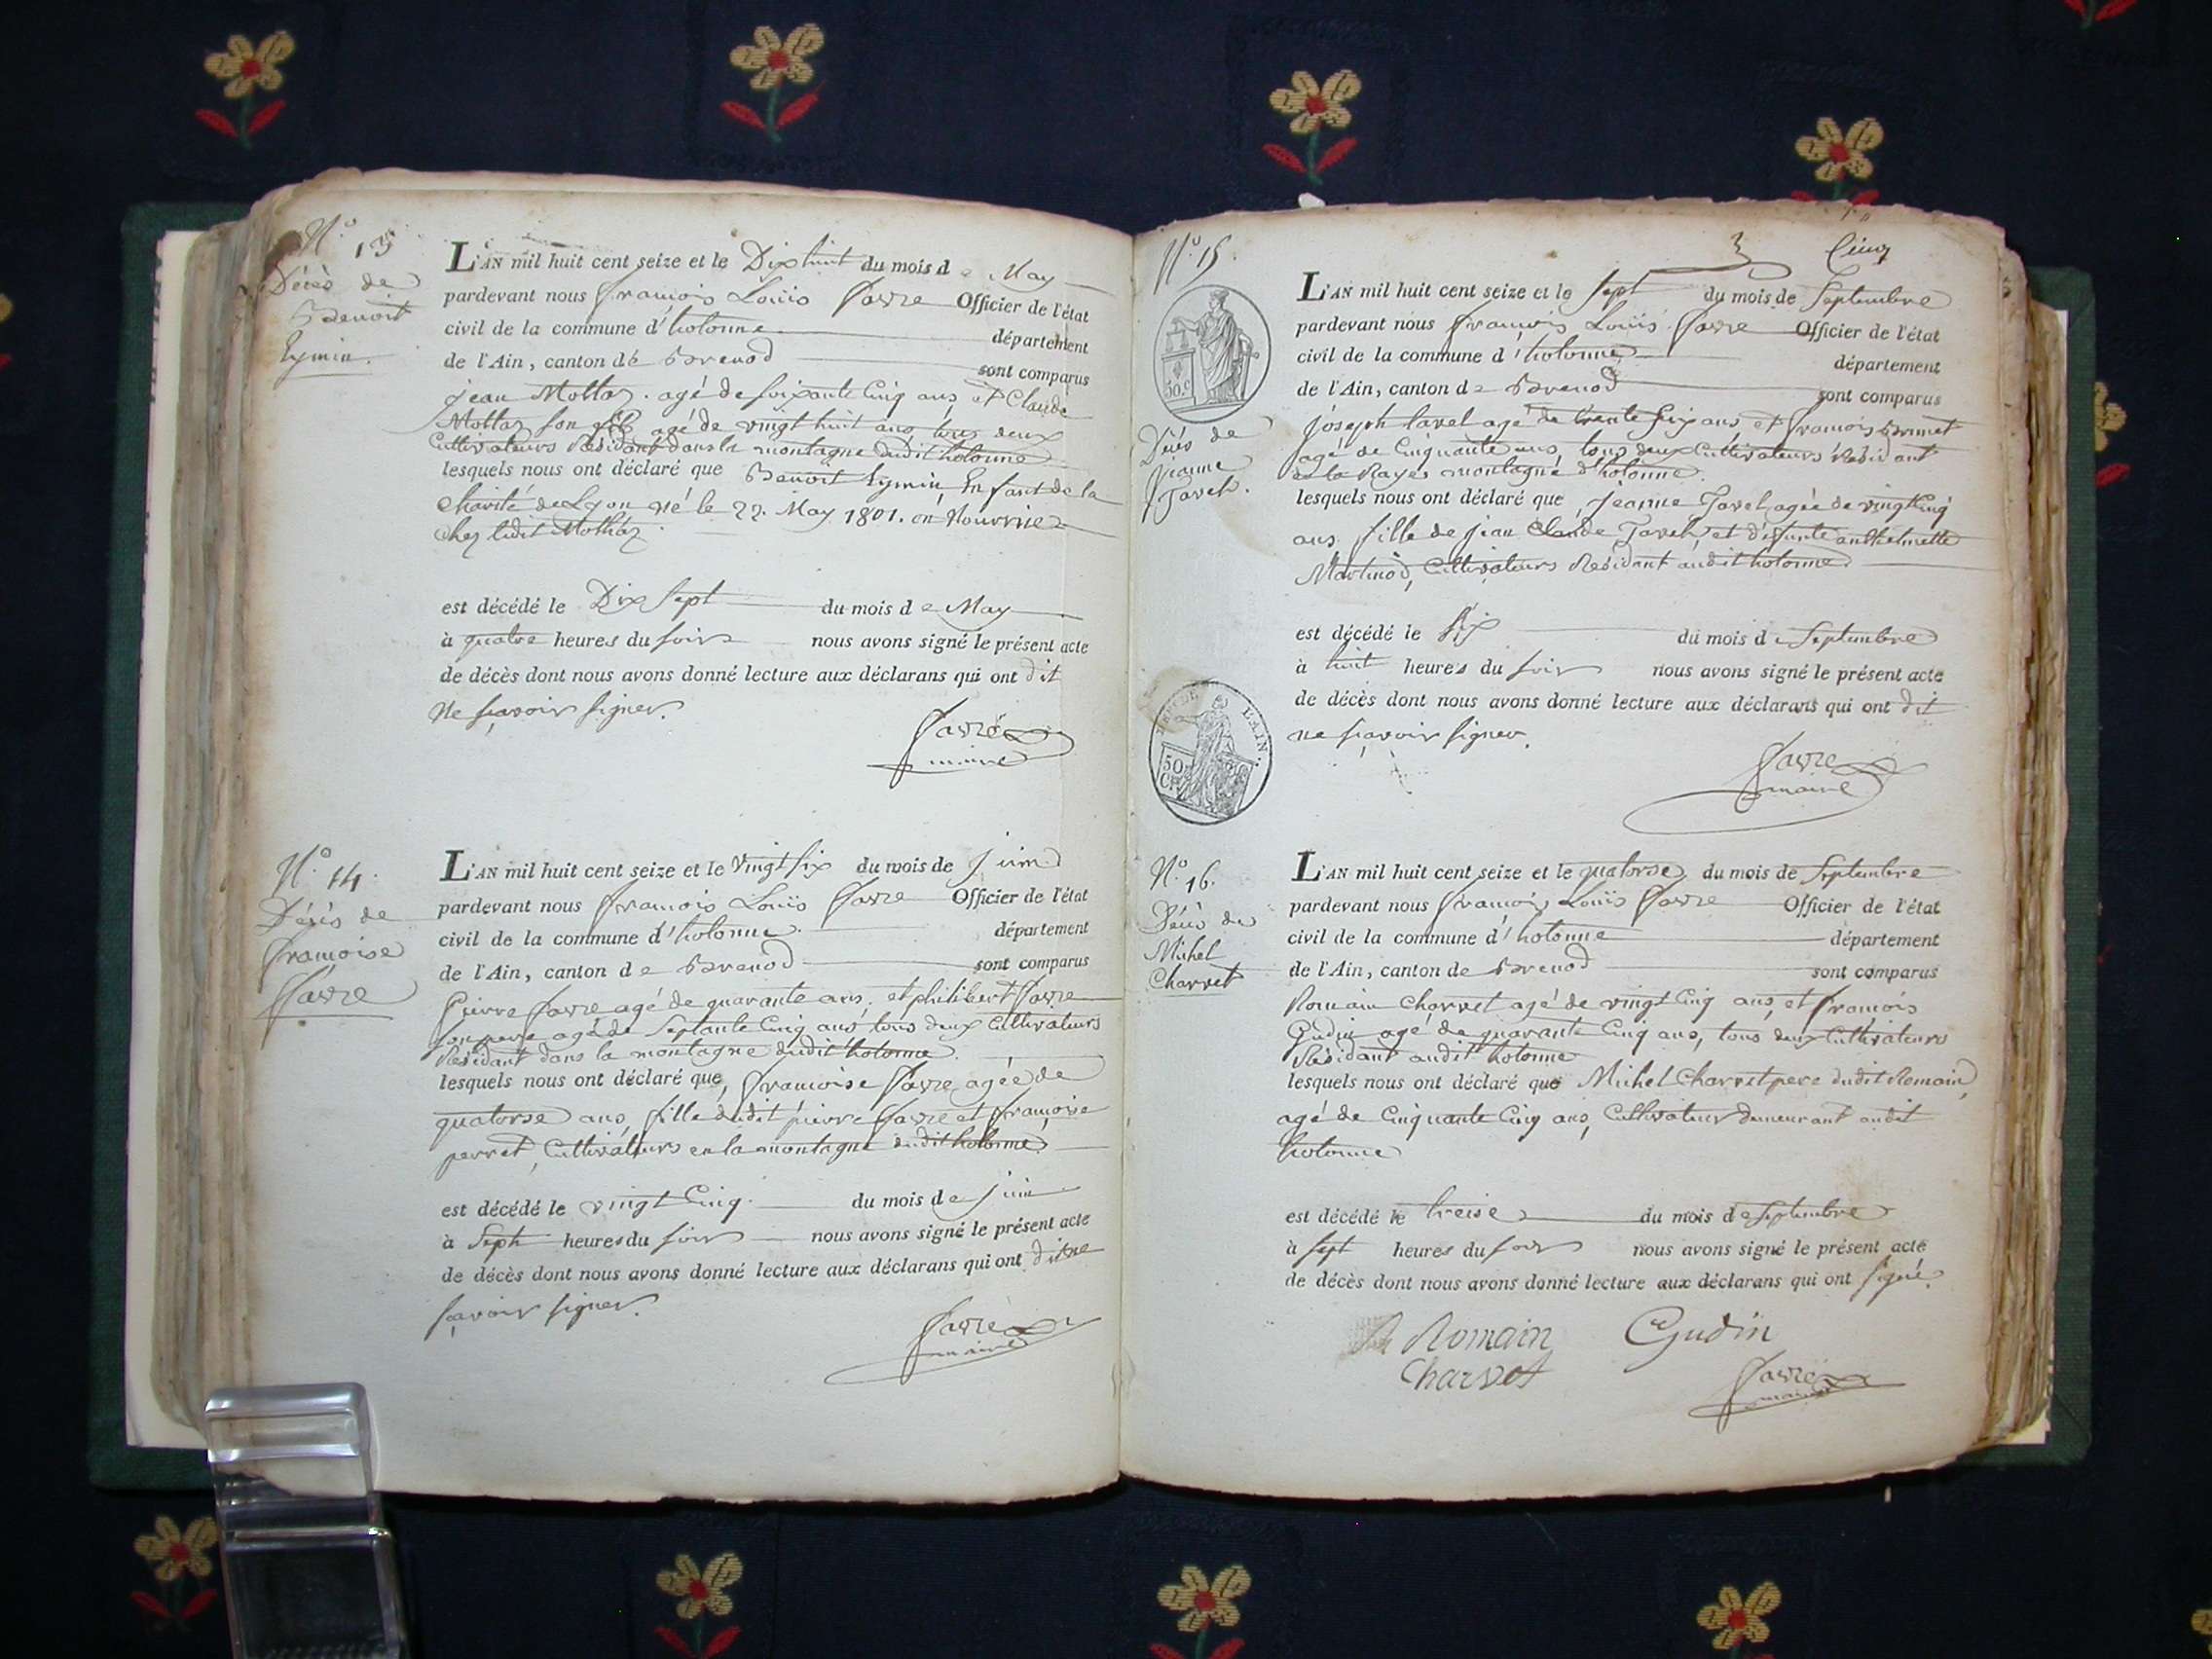 N.° 13
Décès de
Benoit
Eymin.
L'AN mil huit cent seize et le Dix huit du mois de May
pardevant nous françois Louïs favre Officier de l'état
civil de la commune d'hotonne département
de l'Ain, canton de Brenod sont comparus
jean Mottaz. agé de soixante Cinq ans, et Claude
Mottaz son fils agé de vingt huit ans tous deux
Cultivateurs Résidant dans la montagne dudit hotonne
lesquels nous ont déclaré que Benoit Eymin Enfant de la
Charité de Lyon né le 22. May 1801. en Nourrice
Chez ledit Mothaz.
est décédé le Dix sept du mois de May
à quatre heures du soir nous avons signé le présent acte
de décès dont nous avons donné lecture aux déclarans qui ont dit
Ne sçavoir signer.
favre
maire
N.° 14.
Décès de
françoise
favre
L'AN mil huit cent seize et le vingt six du mois de juin
pardevant nous françois Louïs favre Officier de l'état
civil de la commune d'hotonne département
de l'Ain, canton de Brenod sont comparus
Pierre favre agé de quarante ans. et philibert favre
son pere agé de Septante Cinq ans tous deux Cultivateurs
Résidant dans la montagne dudit hotonne.
lesquels nous ont déclaré que, françoise favre agée de
quatorse ans, fille dudit pierre favre et françoise
perret, Cultivateurs en la montagne dudit hotonne
est décédé le vingt Cinq. du mois de juin
à Sept heures du soir nous avons signé le présent acte
de décès dont nous avons donné lecture aux déclarans qui ont dit ne
sçavoir signer.
favre
maire
3 Cinq
N.° 15
50.c
Décès de
Jeanne
Tavel.
L'AN mil huit cent seize et le sept du mois de Septembre
pardevant nous françois Louïs favre Officier de l'état
civil de la commune d'hotonne département
de l'Ain, canton de Brenod sont comparus
joseph tavel agé de trente six ans, et françois Brunet
agé de Cinquante ans, tous deux Cultivateurs Résidant
montagne d'hotonne.
lesquels nous ont déclaré que, jeanne Tavel, agée de vingt Cinq
ans fille de jean Claude Tavel, et défunte anthelmette
Martinod, Cultivateurs Résidant audit hotonne
est décédé le six du mois de Septembre
à huit heures du soir nous avons signé le présent acte
de décès dont nous avons donné lecture aux déclarans qui ont dit
ne sçavoir signer.
L'AIN.
50
favre
maire
N.° 16.
Décès de
Michel
Charvet
L'AN mil huit cent seize et le quatorse du mois de Septembre
pardevant nous françois Louïs favre Officier de l'état
civil de la commune d'hotonne département
de l'Ain, canton de Brenod sont comparus
Romain Charvet agé de vingt Cinq ans, et françois
Gudin agé de quarante Cinq ans, tous deux Cultivateurs
Résidant audit hotonne
lesquels nous ont déclaré que Michel Charvet pere dudit Romain,
agé de Cinquante Cinq ans, Cultivateur demeurant audit
hotonne
est décédé le treise du mois de Septembre
à sept heures du soir nous avons signé le présent acte
de décès dont nous avons donné lecture aux déclarans qui ont signé.
Romain Gudin
Charvet
favre
maire